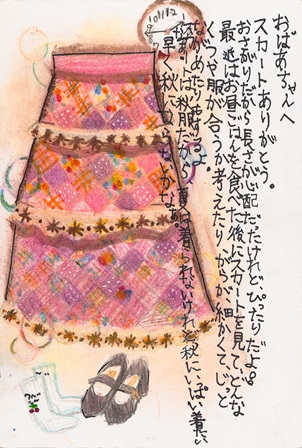 おばあちゃんへ
スカートありがとう。
おさがりだから長さが心配だったけれど、ぴったりだよ。
最近はお昼ごはんを食べた後にスカートを見て、どんな
くつや服が合うか考えたりがらが細かくて、じっと
ながめたりしているよ。
スカートは秋服だから夏は着られないけれど秋にいっぱい着たい
早く秋にならないかなあ。